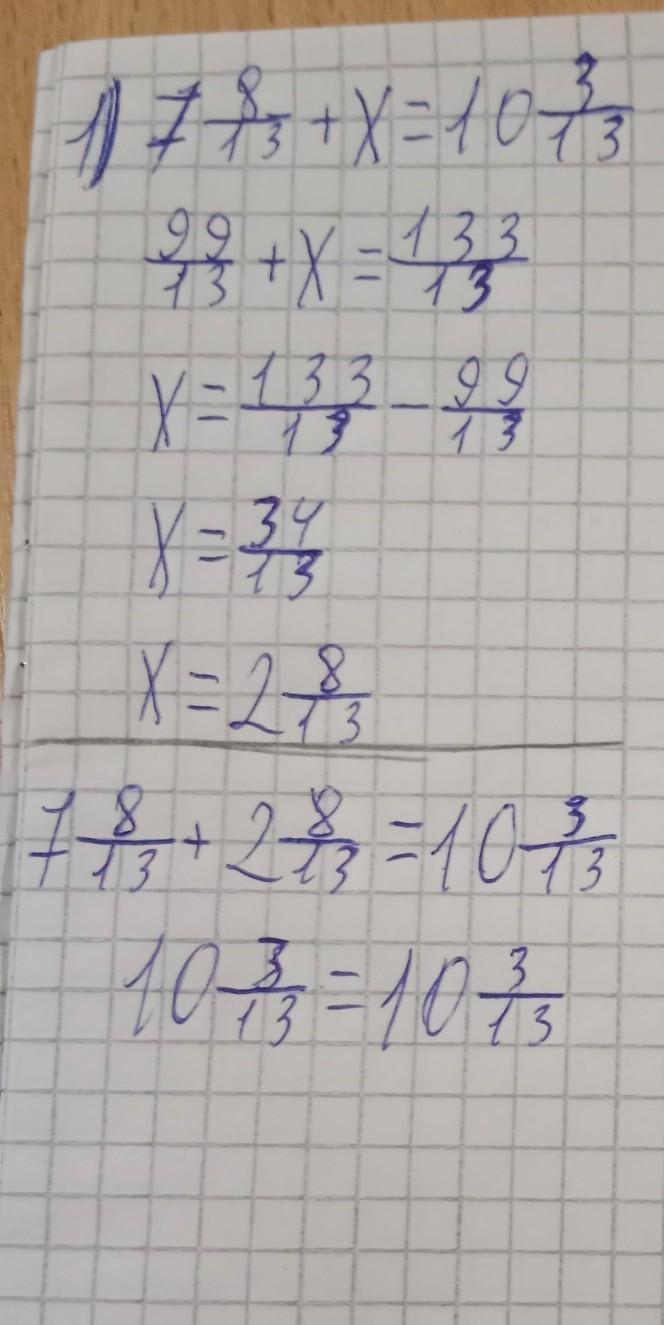 1) 7 8/13 + X = 10 3/13
99/13 + X = 133/13
X = 133/13 - 99/13
X = 34/13
X = 2 8/13
7 8/13 + 2 8/13 = 10 3/13
10 3/13 = 10 3/13